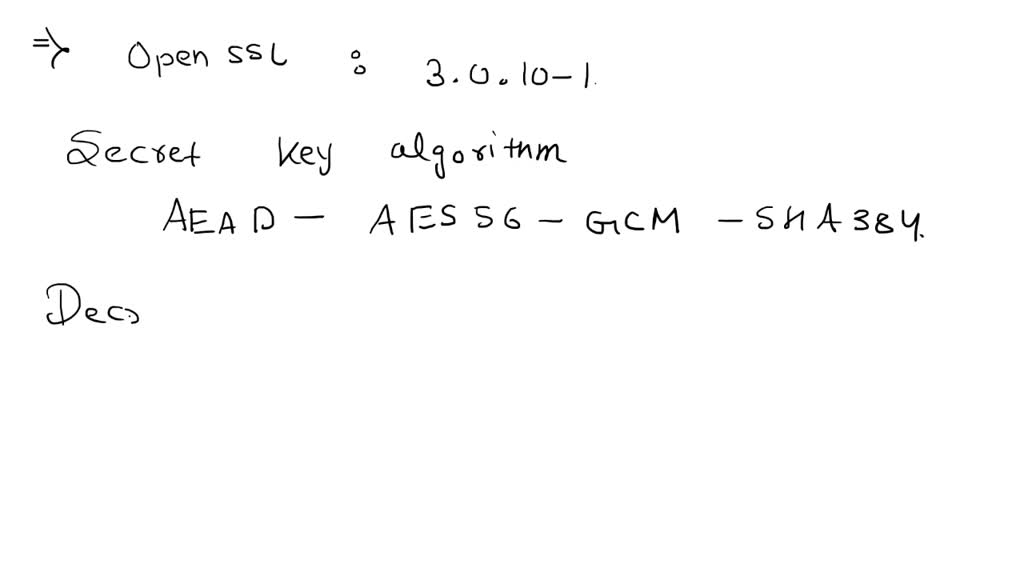 ⇒ Open SSL : 3.0.10-1.
Secret key algorithm
AEAD - AES56 - GCM - SHA384.
Deco